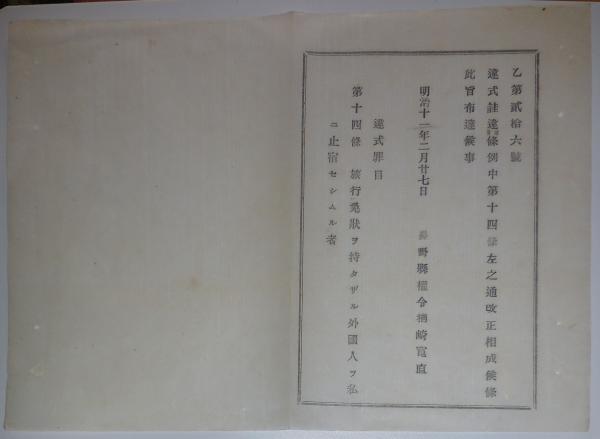 乙第貳拾六號
違式詿違條例中第十四條左之通改正相成候條
此旨布達候事
明治十一年二月廿七日 長野縣權令楢崎寬直
違式罪目
第十四條 旅行免狀ヲ持タザル外國人ヲ私
ニ止宿セシムル者